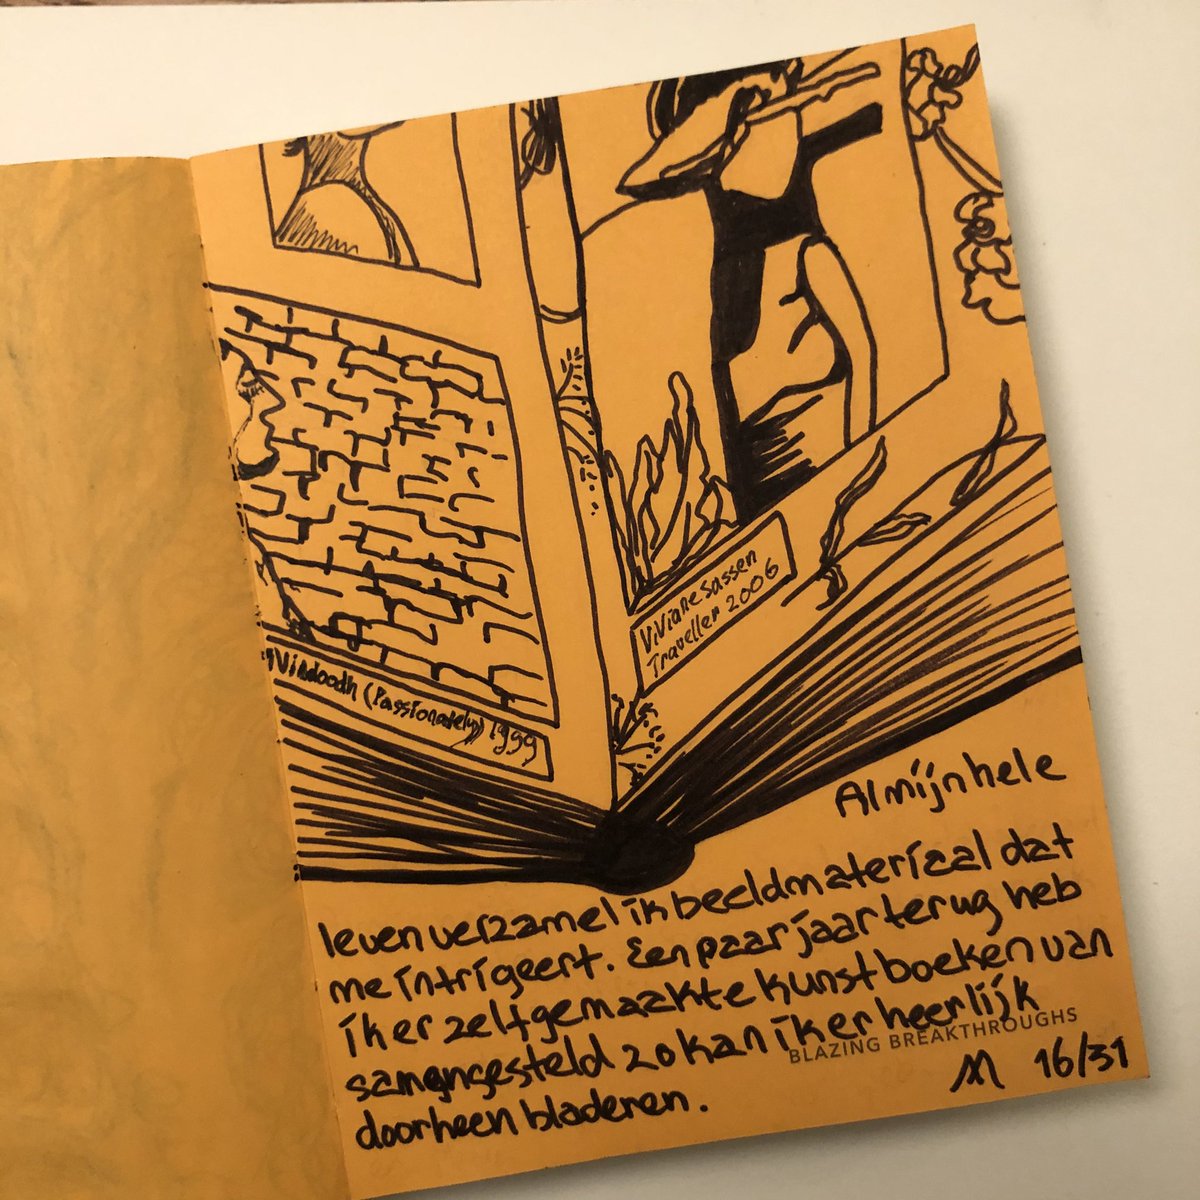 Vinoodh (Passionately) 1999
Viviane Sassen
Traveller 2006
Al mijn hele
leven verzamel ik beeldmateriaal dat
me intrigeert. Een paar jaar terug heb
ik er zelfgemaakte kunstboeken van
samengesteld zo kan ik er heerlijk
doorheen bladeren.
BLAZING BREAKTHROUGHS
16/31